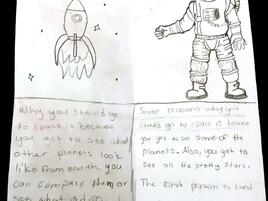 Why you should go
to space is because
you get to see what
other planets look
like from earth. you
can compare them or
Some reasons why you
should go to space is because
you get to see some of the
planets. Also, you get to
see all the pretty stars.
The first person to land